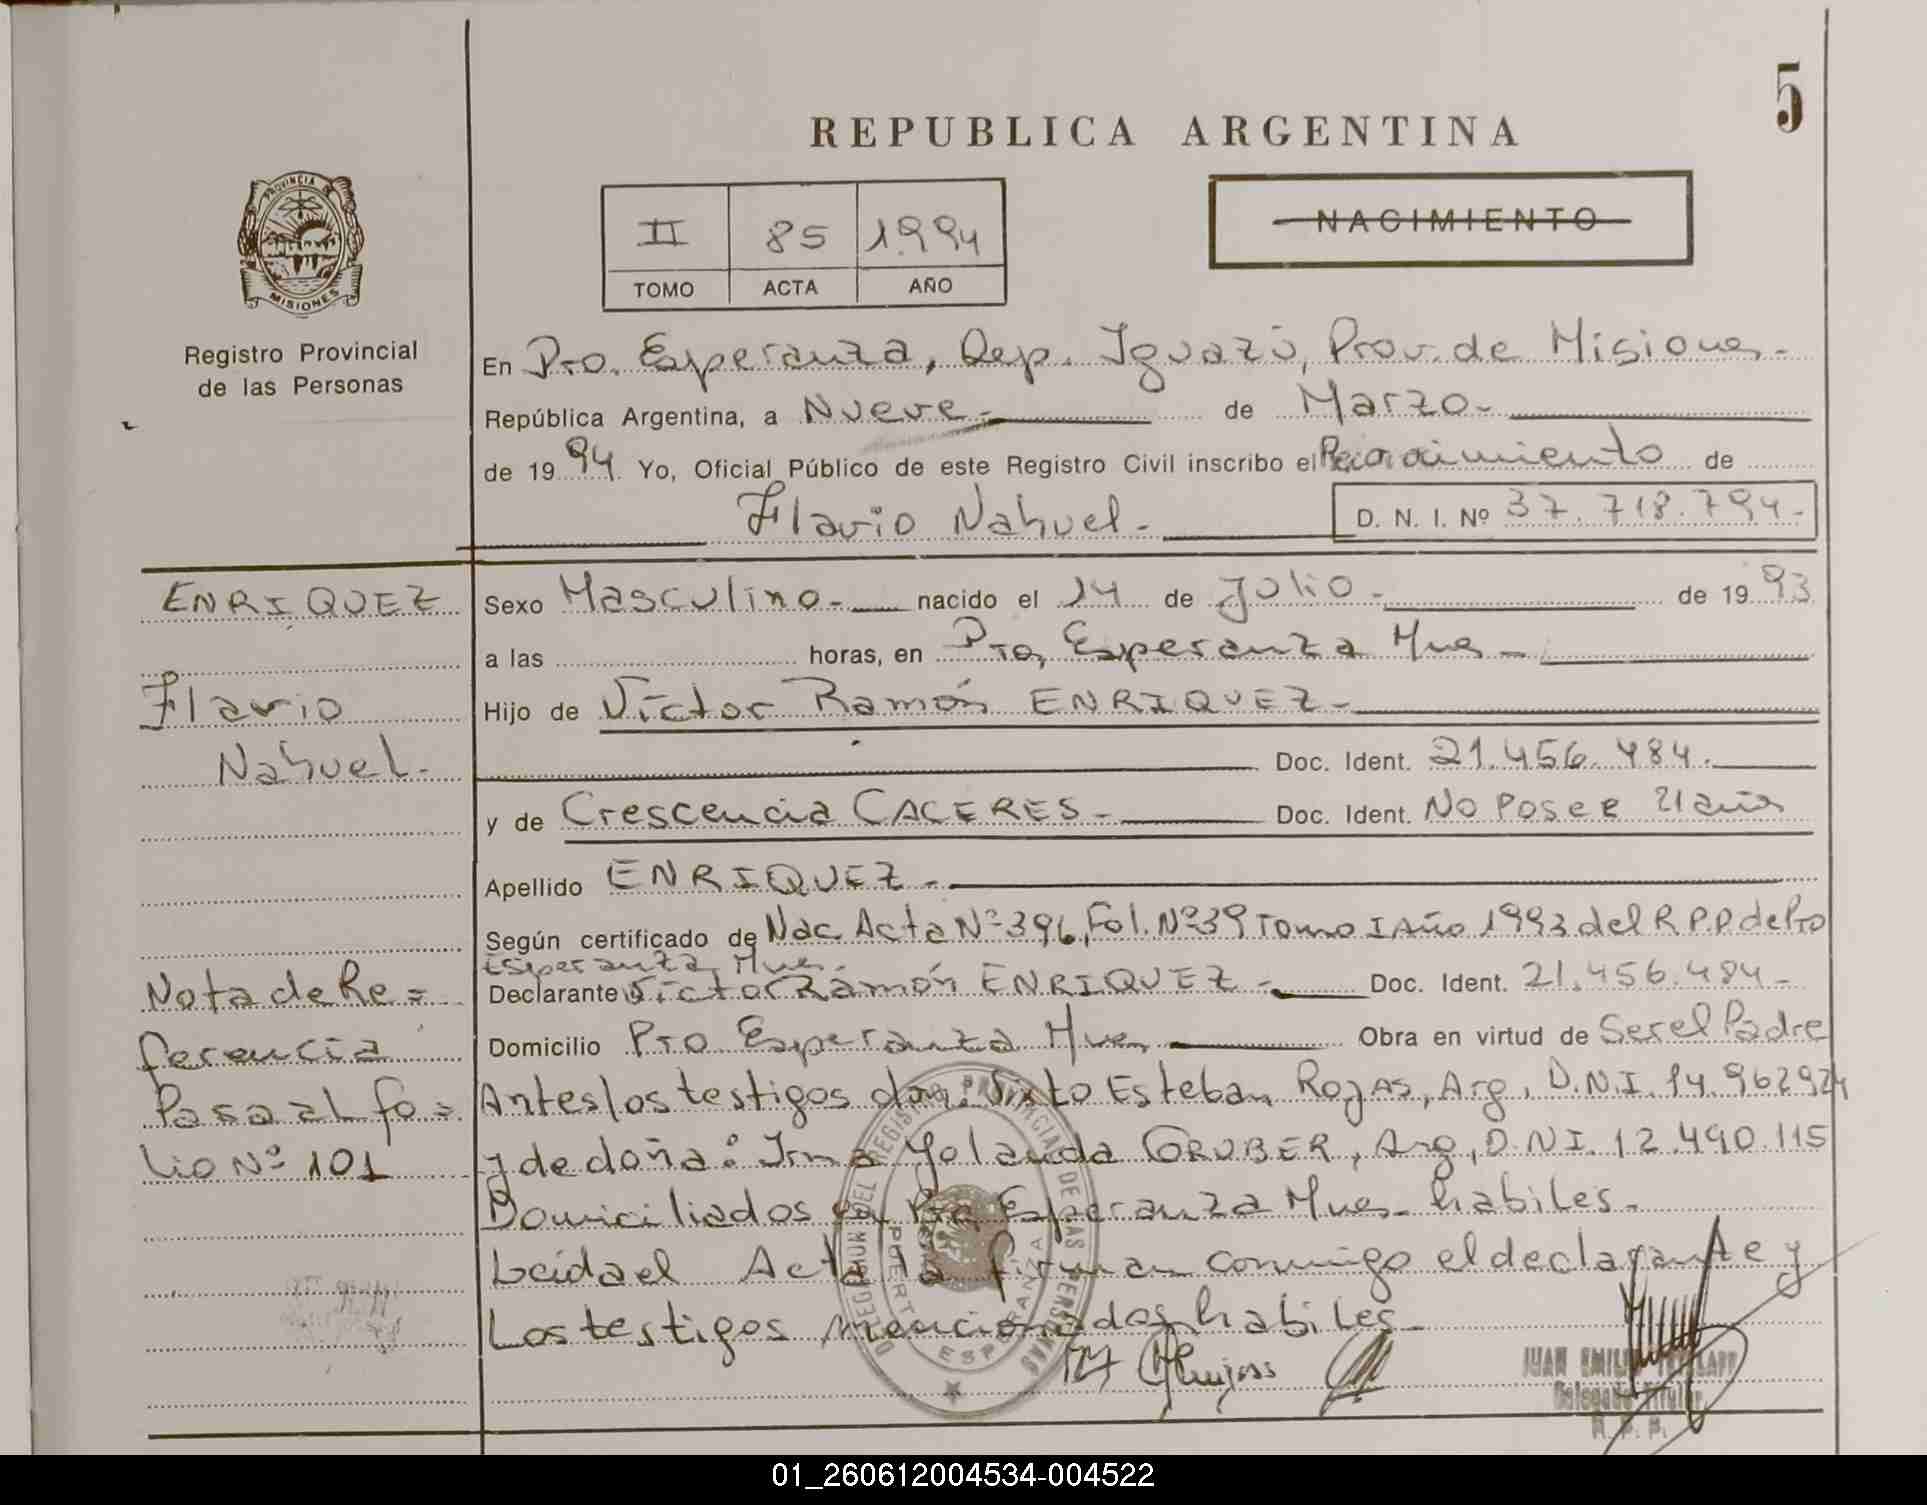 5
REPUBLICA ARGENTINA
PROVINCIA DE
MISIONES
Registro Provincial
de las Personas
II 85 1994
TOMO ACTA AÑO
NACIMIENTO
En Pto. Esperanza, Dep. Iguazú, Prov. de Misiones.-
República Argentina, a Nueve.- de Marzo.-
de 1994 Yo, Oficial Público de este Registro Civil inscribo el Reconocimiento de
Flavio Nahuel.-
D. N. I. Nº 37.718.794.-
ENRIQUEZ
Flavio
Nahuel.-
Sexo Masculino.- nacido el 14 de Julio.- de 1993
a las horas, en Pto, Esperanza Mnes.-
Hijo de Víctor Ramón ENRIQUEZ.-
Doc. Ident. 21.456.484.
y de Crescencia CACERES.- Doc. Ident. No Posee 21 años
Apellido ENRIQUEZ.-
Según certificado de Nac. Acta Nº 396, Fol. Nº 39 Tomo I Año 1993 del R.P.P. de Pto
Esperanza, Mnes.-
Declarante Víctor Ramón ENRIQUEZ.- Doc. Ident. 21.456.484.-
Domicilio Pto Esperanza Mnes, Obra en virtud de Ser el Padre
Antes los testigos don: Sixto Esteban ROJAS, Arg, D.N.I. 14.962924
y de doña: Irma Yolanda GRUBER, Arg, D.NI. 12.490.115
Domiciliados en Pto Esperanza Mnes- habiles.-
Leída el Acta la firman conmigo el declarante y
Los testigos mencionados habiles.-
Nota de Re=
ferencia
Pasa al fo=
lio Nº 101
DELEGACION DEL REGISTRO PROVINCIAL DE LAS PERSONAS
PUERTO ESPERANZA
JUAN EMILIO
Delegado Titular
R. P. P.
01_260612004534-004522